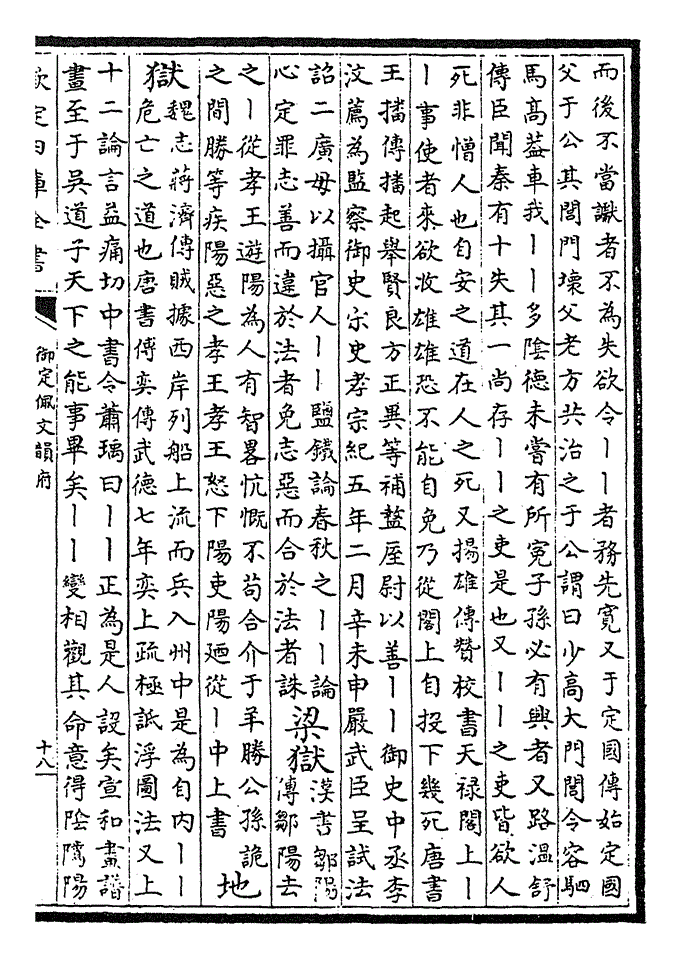 而後不當讞者不為失欲令丨丨者務先寛又于定國傳始定國
父于公其閭門壊父老方共治之于公謂曰少髙大門閭令容駟
馬髙葢車我丨丨多隂德未嘗有所寃子孫必有興者又路温舒
傳臣聞秦有十失其一尚存丨丨之吏是也又丨丨之吏皆欲人
死非憎人也自安之道在人之死又揚雄傳贊校書天禄閣上丨
丨事使者來欲收雄雄恐不能自免乃從閣上自投下幾死唐書
王播傳播起舉賢良方正異等補盩厔尉以善丨丨御史中丞李
汶薦為監察御史宋史孝宗紀五年二月辛未申嚴武臣呈試法
詔二廣毋以攝官人丨丨鹽鐵論春秋之丨丨論
心定罪志善而違於法者免志惡而合於法者誅
梁獄漢書鄒陽
傳鄒陽去
之丨從孝王遊陽為人有智畧忼慨不苟合介于羊勝公孫詭
之間勝等疾陽惡之孝王孝王怒下陽吏陽廼從丨中上書
地
獄魏志蔣濟傳賊據西岸列船上流而兵入州中是為自内丨丨
危亡之道也唐書傅奕傳武德七年奕上疏極詆浮圖法又上
十二論言益痛切中書令蕭瑀曰丨丨正為是人設矣宣和畫譜
畫至于吳道子天下之能事畢矣丨丨變相觀其命意得隂隲陽
欽定四庫全書
御定佩文韻府
十八